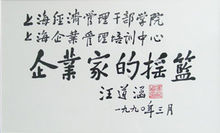 上海经济管理干部学院
上海企業管理培训中心
企業家的摇籃
汪道涵
一九九〇年三月